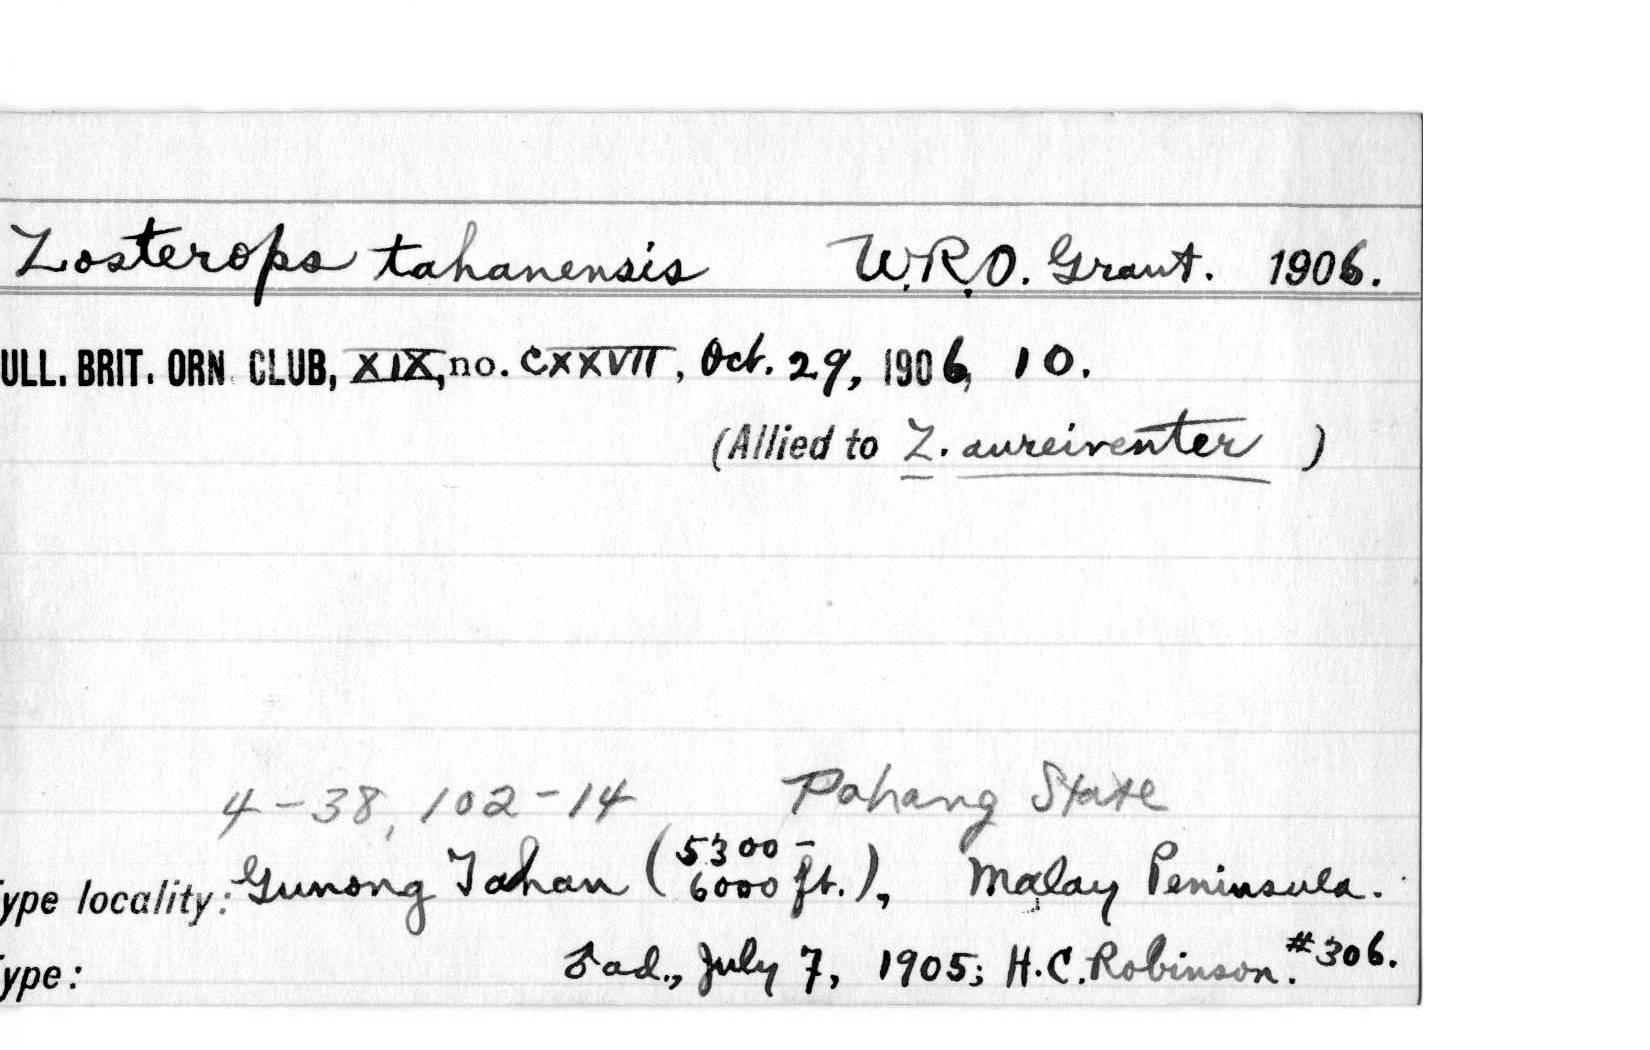 Zosterops tahanensis W.R.O. Grant. 1906.
ULL. BRIT. ORN. CLUB, XIX, no. CXXVII, Oct. 29, 1906, 10.
(Allied to Z. aureiventer )
4-38, 102-14 Pahang State
ype locality: Gunong Tahan (5300-6000 ft.), Malay Peninsula.
ype: ♂ ad., July 7, 1905; H.C. Robinson. #306.